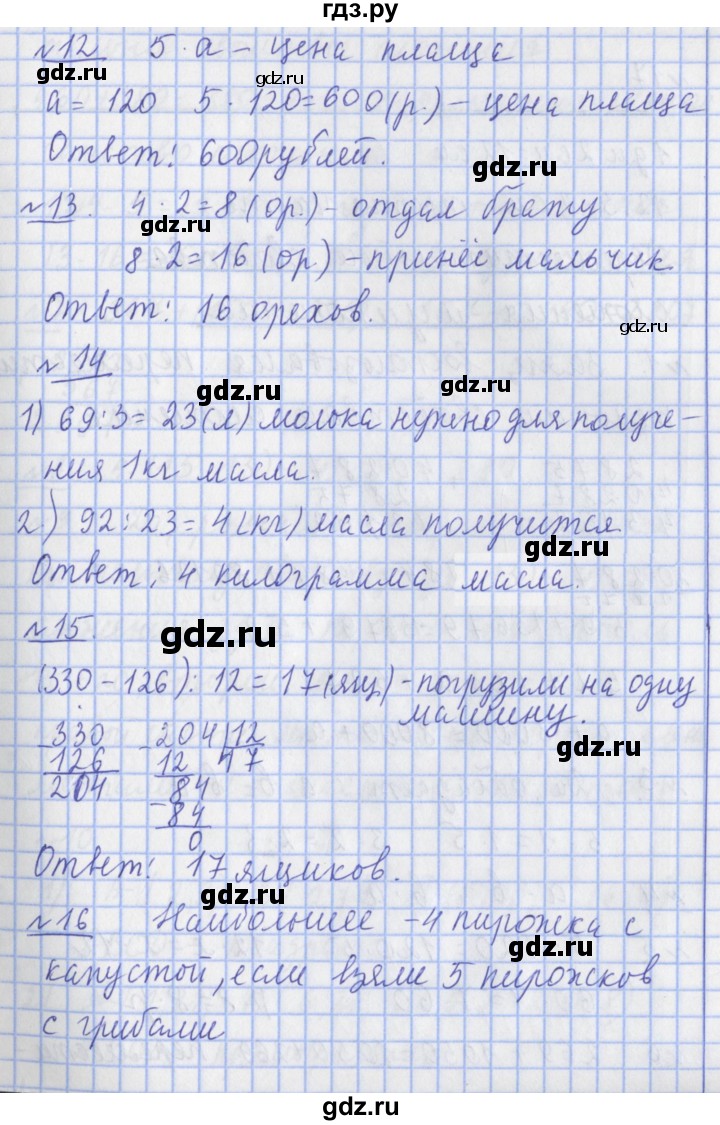 гдз.ру
№12 5·а – цена плаща
gdz.ru gdz.ru
а = 120 5·120=600(р.) – цена плаща
Ответ: 600 рублей.
gdz.ru
№13. 4·2=8 (ор.) – отдал брату
gdz.ru
8·2=16 (ор.) – принёс мальчик.
Ответ: 16 орехов.
gdz.ru
№14
gdz.ru gdz.ru
1) 69:3=23(л) молока нужно для получе-
ния 1кг масла.
2) 92:23=4(кг) масла получится.
gdz.ru
Ответ: 4 килограмма масла.
№15.
gdz.ru
(330–126):12=17(ящ) – погрузили на одну
машину.
330 204 12
126 12 17
204 84
gdz.ru
84
0
Ответ: 17 ящиков.
gdz.ru
№16 Наибольшее – 4 пирожка с
gdz.ru
капустой, если взяли 5 пирожков
с грибами
gdz.ru gdz.ru
gdz.ru